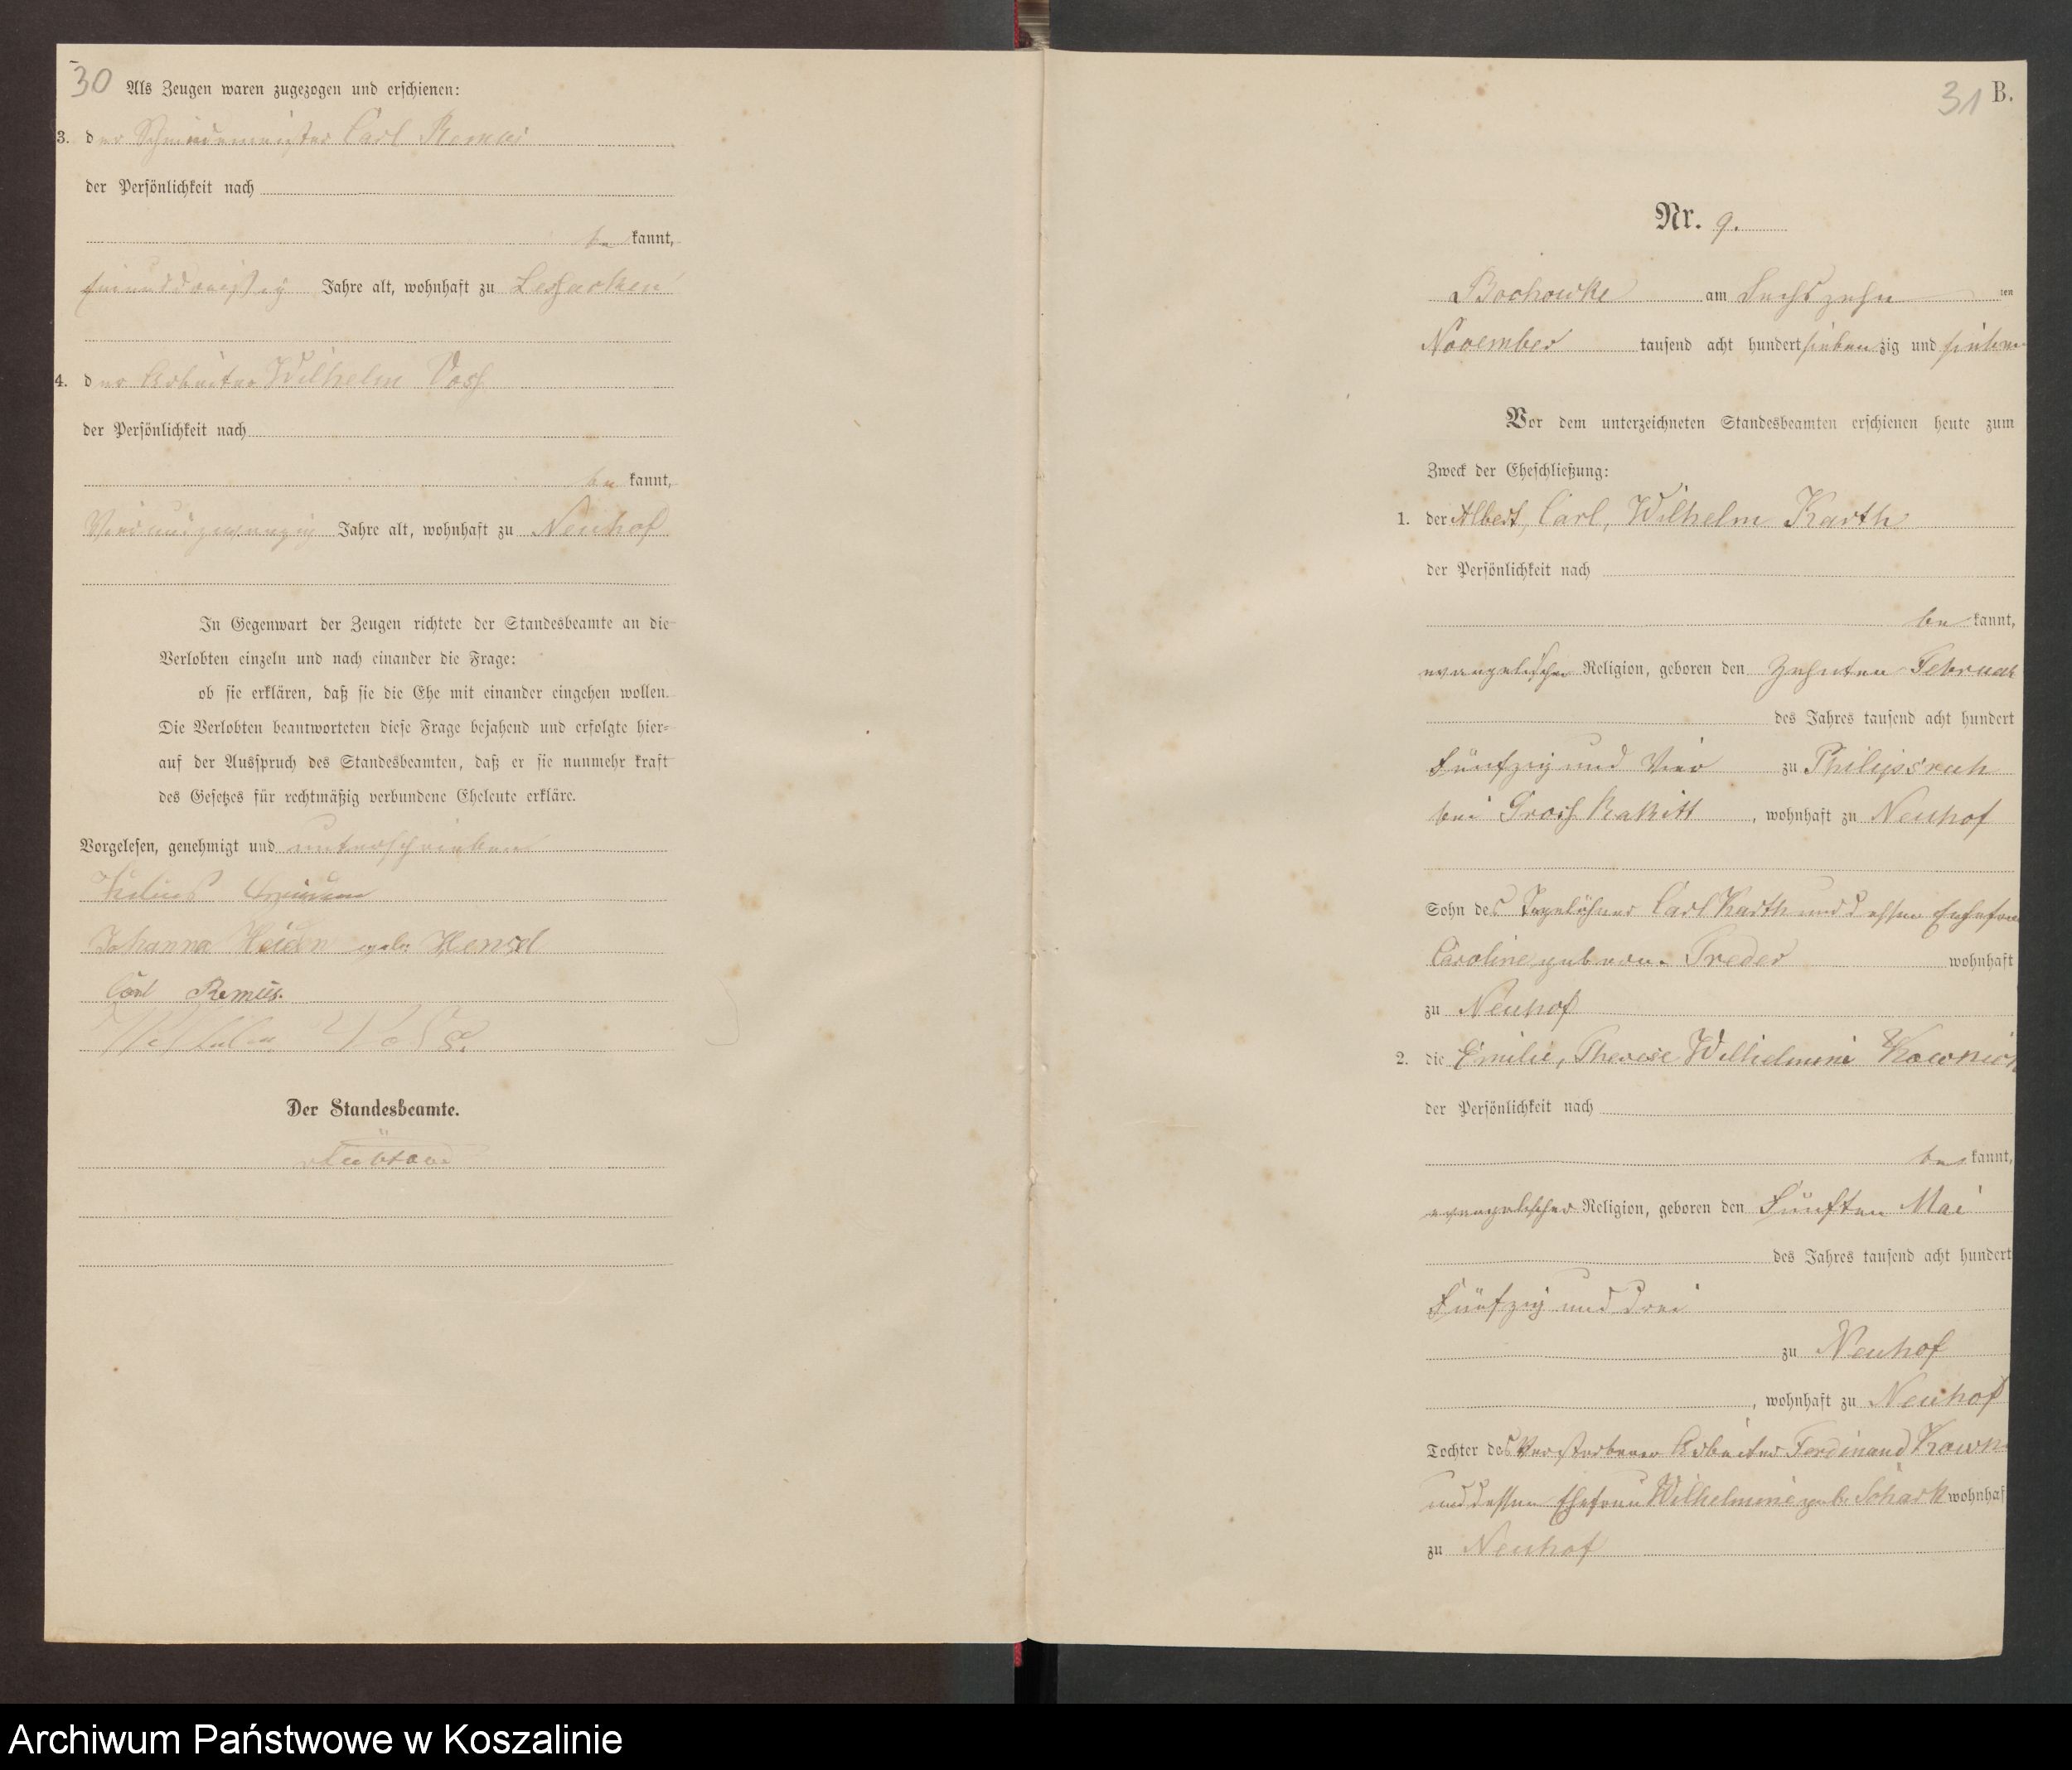 30
Als Zeugen waren zugezogen und erschienen:
3. der Schmiedemeister Carl Remus
der Persönlichkeit nach
be kannt,
Jahre alt, wohnhaft zu
4. der Arbeiter Wilhelm Voss
der Persönlichkeit nach
be kannt,
Vierundzwanzig Jahre alt, wohnhaft zu Neuhof
In Gegenwart der Zeugen richtete der Standesbeamte an die
Verlobten einzeln und nach einander die Frage:
ob sie erklären, daß sie die Ehe mit einander eingehen wollen.
Die Verlobten beantworteten diese Frage bejahend und erfolgte hier=
auf der Ausspruch des Standesbeamten, daß er sie nunmehr kraft
des Gesetzes für rechtmäßig verbundene Eheleute erkläre.
Vorgelesen, genehmigt und unterschrieben
Julius
Johanna geb. Hensel
Carl Remus.
Wilhelm Voss.
Der Standesbeamte.
31 B.
Nr. 9.
Bochowke am Sechszehn ten
November tausend acht hundert sieben zig und sieben
Vor dem unterzeichneten Standesbeamten erschienen heute zum
Zweck der Eheschließung:
1. der Albert, Carl, Wilhelm Karth
der Persönlichkeit nach
be kannt,
evangelischer Religion, geboren den zehnten Februar
des Jahres tausend acht hundert
Fünfzig und Vier zu Philipsruh
bei Gross Rakitt, wohnhaft zu Neuhof
Sohn des Tagelöhner Carl Karth und dessen Ehefrau
Caroline geborene Treder wohnhaft
zu Neuhof
2. die Emilie, Therese Wilhelmine
der Persönlichkeit nach
be kannt,
evangelischer Religion, geboren den Fünften Mai
des Jahres tausend acht hundert
Fünfzig und drei
zu Neuhof
, wohnhaft zu Neuhof
Tochter des Verstorbenen Arbeiter Ferdinand
und dessen Ehefrau Wilhelmine geb. Schark wohnhaf
zu Neuhof
Archiwum Państwowe w Koszalinie